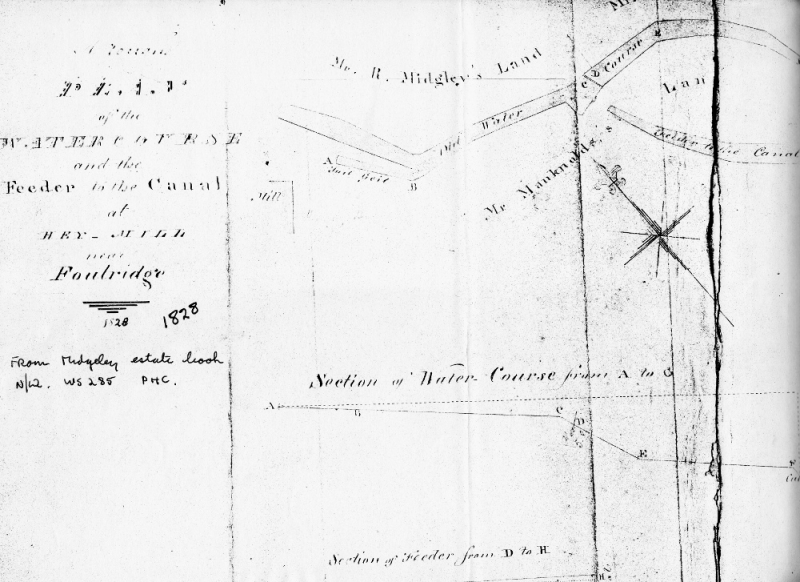 PLAN
of the
WATER COURSE
and the
Feeder to the Canal
at
HEY-MILL
near
Foulridge
1828
1828
From Midgeley estate book
N/W. WS 285 PHC.
Mr. R. Midgley's Land
Old Water Course
C
D
E
A
Tail Goit
B
Mill
Mr. Manknolds's
Lan
Feeder to the Canal
Section of Water-Course from A to G
A
G
C
D
E
F
Section of Feeder from D to H